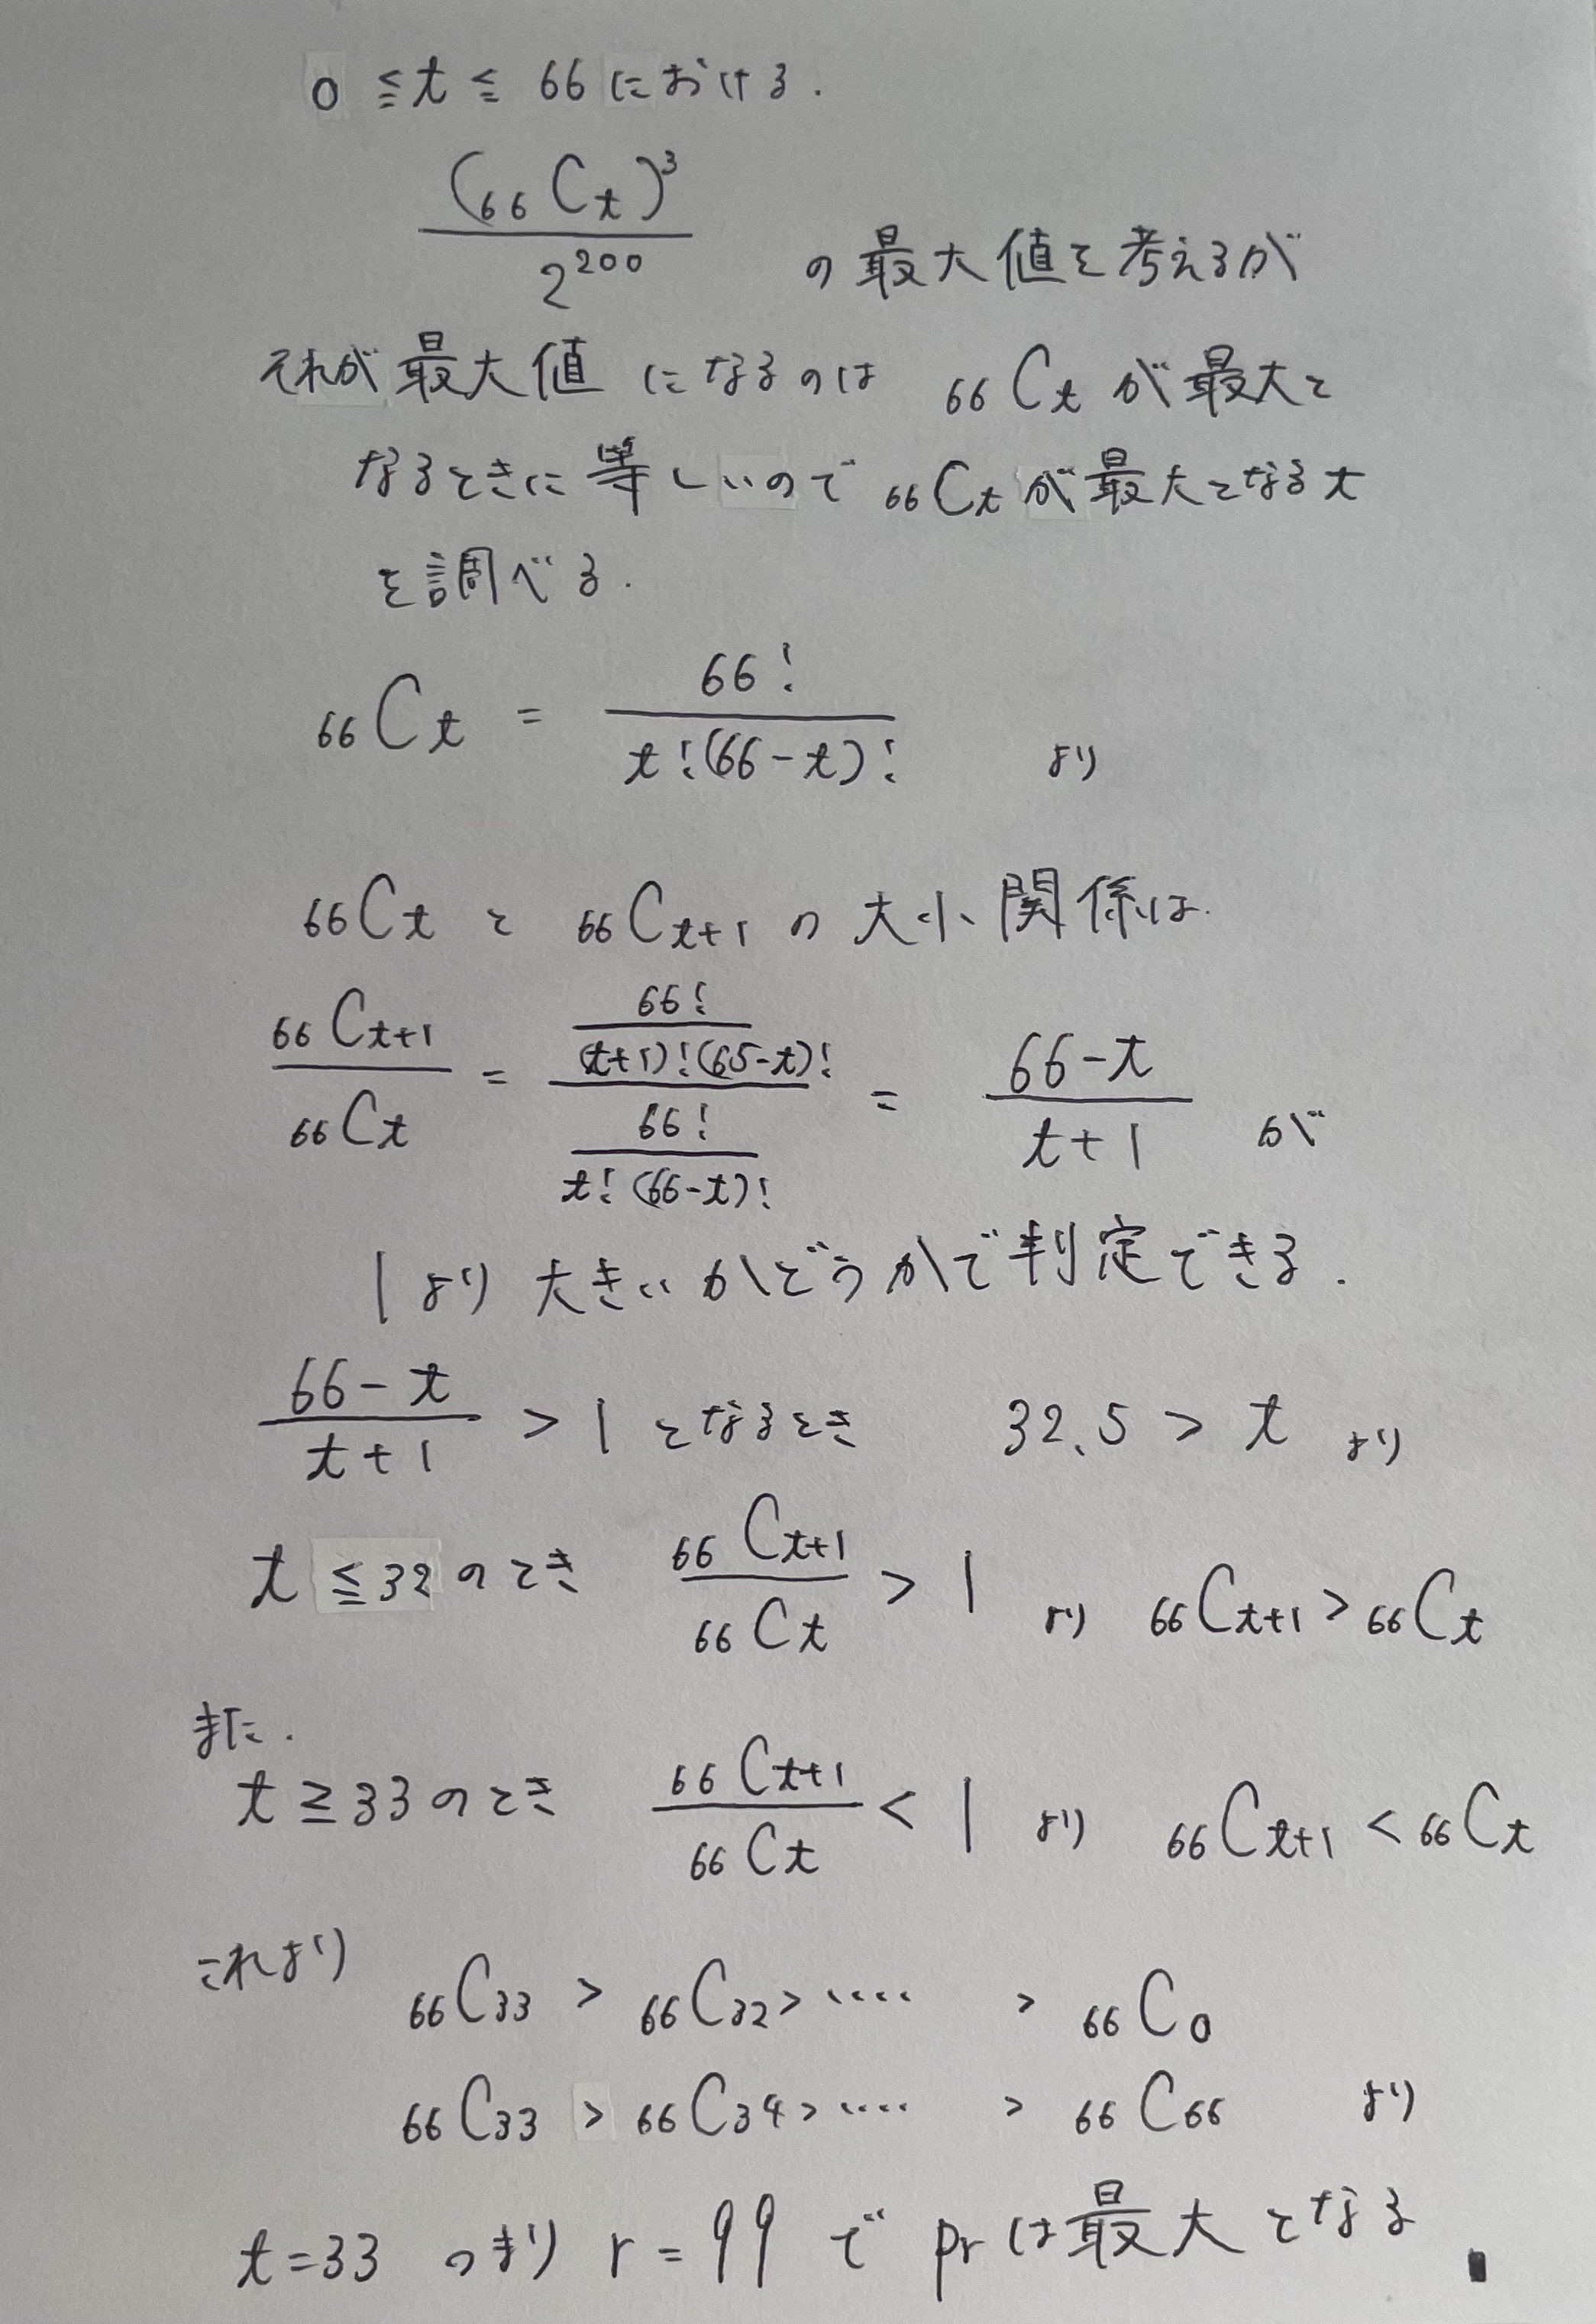 0 ≦ t ≦ 66 における.
(₆₆Cₜ)³ / 2²⁰⁰ の最大値を考えるが
それが最大値になるのは ₆₆Cₜ が最大と
なるときに等しいので ₆₆Cₜ が最大となる t
を調べる.
₆₆Cₜ = 66! / t!(66-t)! より
₆₆Cₜ と ₆₆Cₜ₊₁ の大小関係は.
₆₆Cₜ₊₁ / ₆₆Cₜ = (66! / (t+1)!(65-t)!) / (66! / t!(66-t)!) = (66-t) / (t+1) が
1より大きいかどうかで判定できる.
(66-t) / (t+1) > 1 となるとき 32.5 > t より
t ≦ 32 のとき ₆₆Cₜ₊₁ / ₆₆Cₜ > 1 より ₆₆Cₜ₊₁ > ₆₆Cₜ
また.
t ≧ 33 のとき ₆₆Cₜ₊₁ / ₆₆Cₜ < 1 より ₆₆Cₜ₊₁ < ₆₆Cₜ
これより
₆₆C₃₃ > ₆₆C₃₂ > ‥‥ > ₆₆C₀
₆₆C₃₃ > ₆₆C₃₄ > ‥‥ > ₆₆C₆₆ より
t=33 つまり r = 99 で pr は最大となる ∎